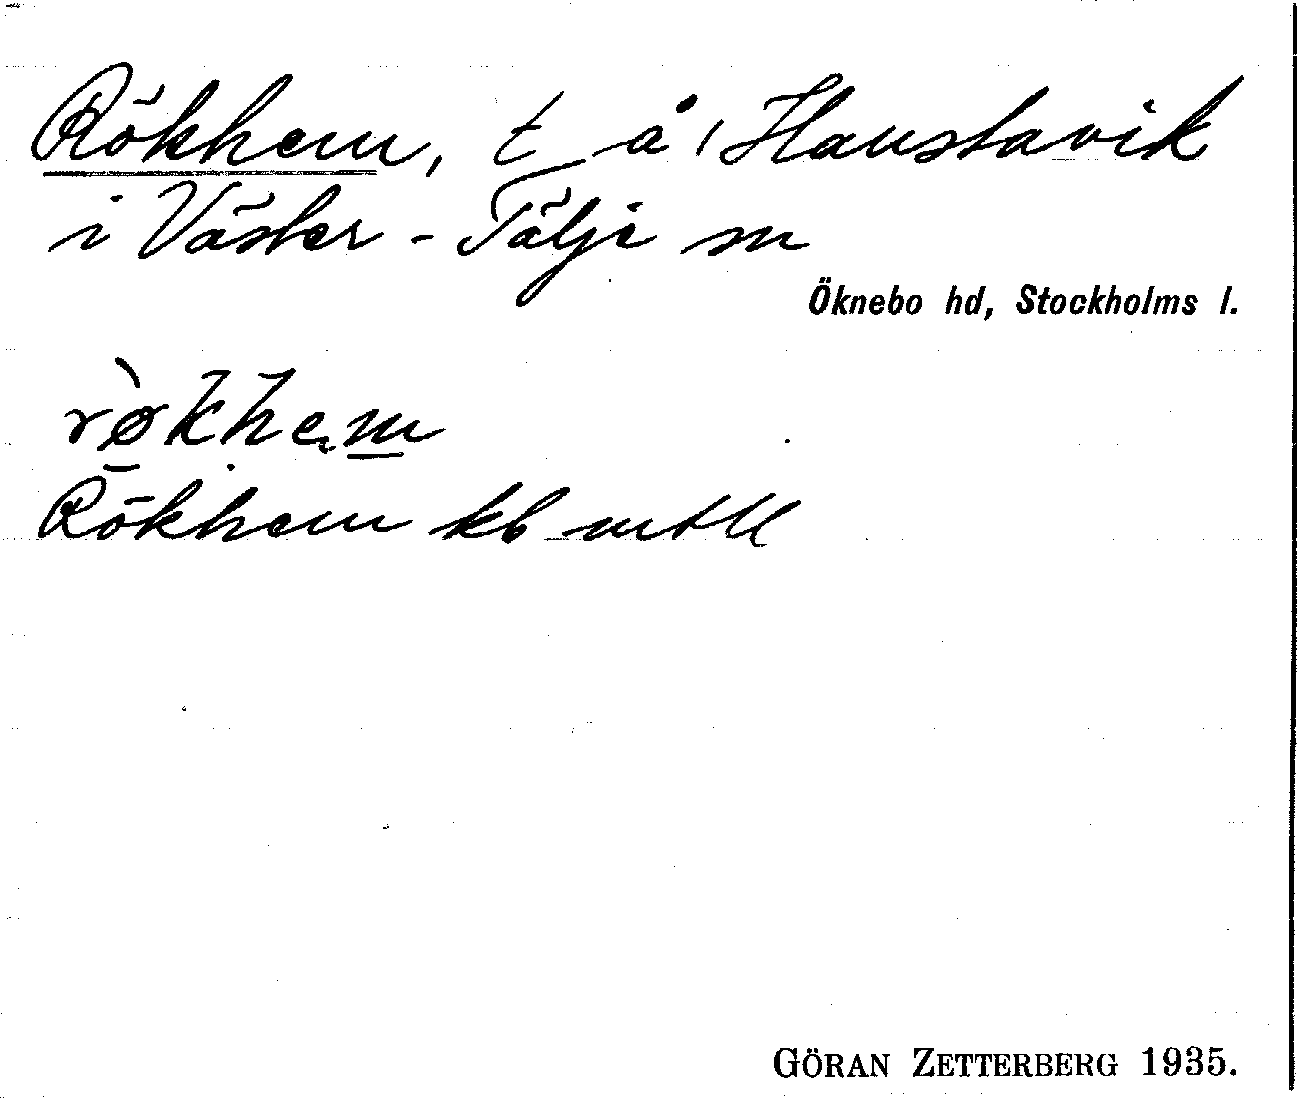 Rökhem, t å Hanstavik
i Väster-Tälje sn
Öknebo hd, Stockholms l.
rø̀khem
Rökhem kb mtll
GÖRAN ZETTERBERG 1935.